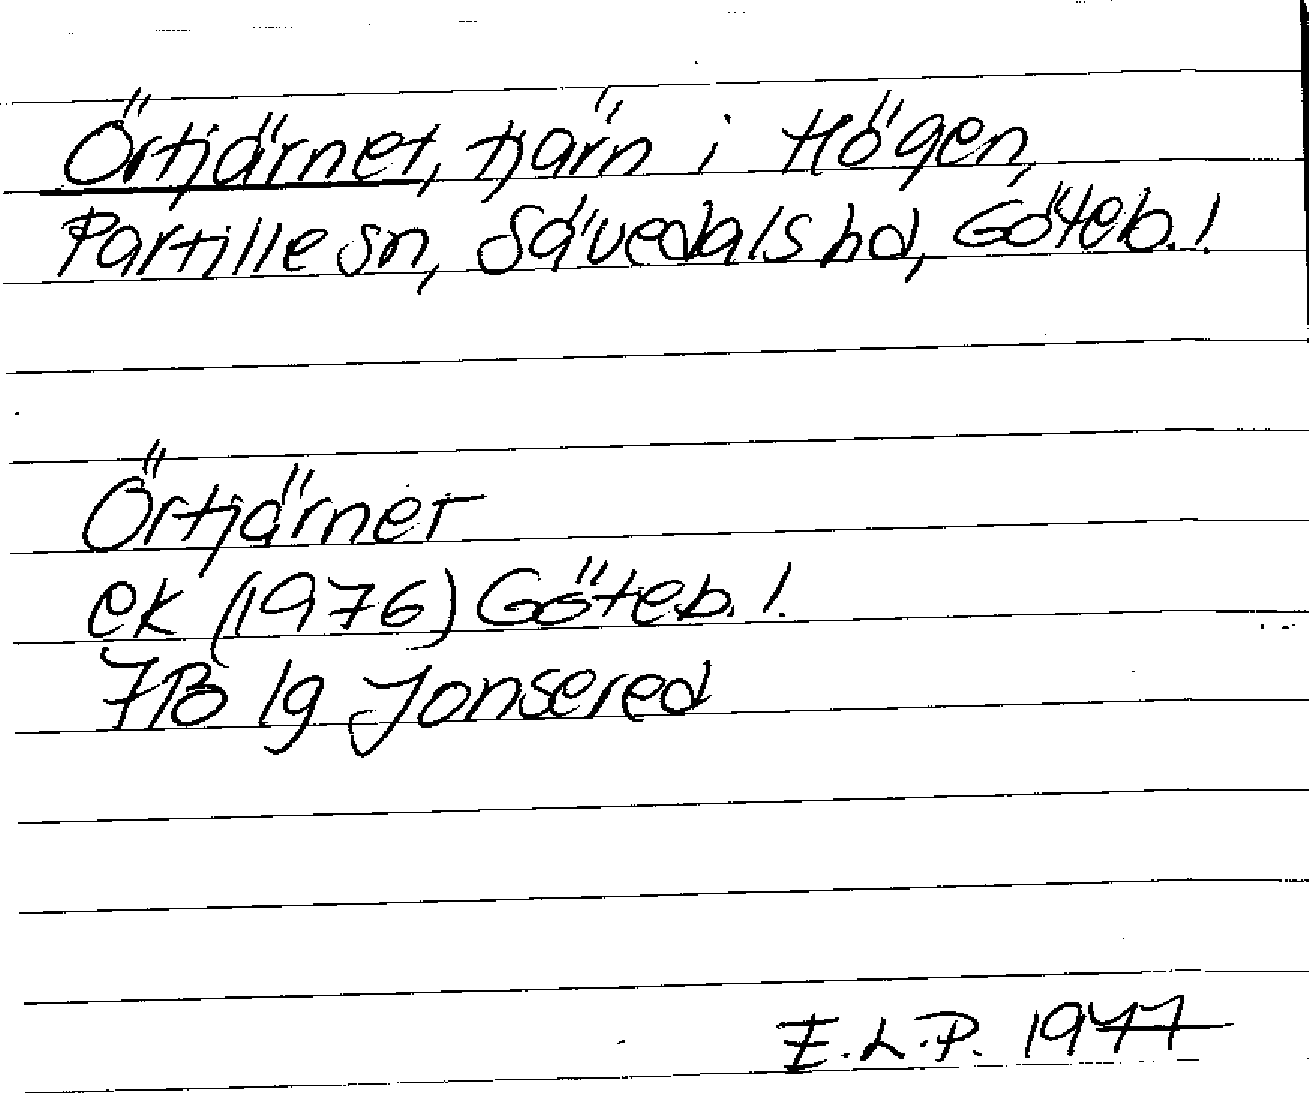 Örtjärnet, tjärn i Högen,
Partille sn, Sävedals hd, Göteb. l.
Örtjärnet
ek (1976) Göteb. l.
7B 1g Jonsered
E.L.P. 1977